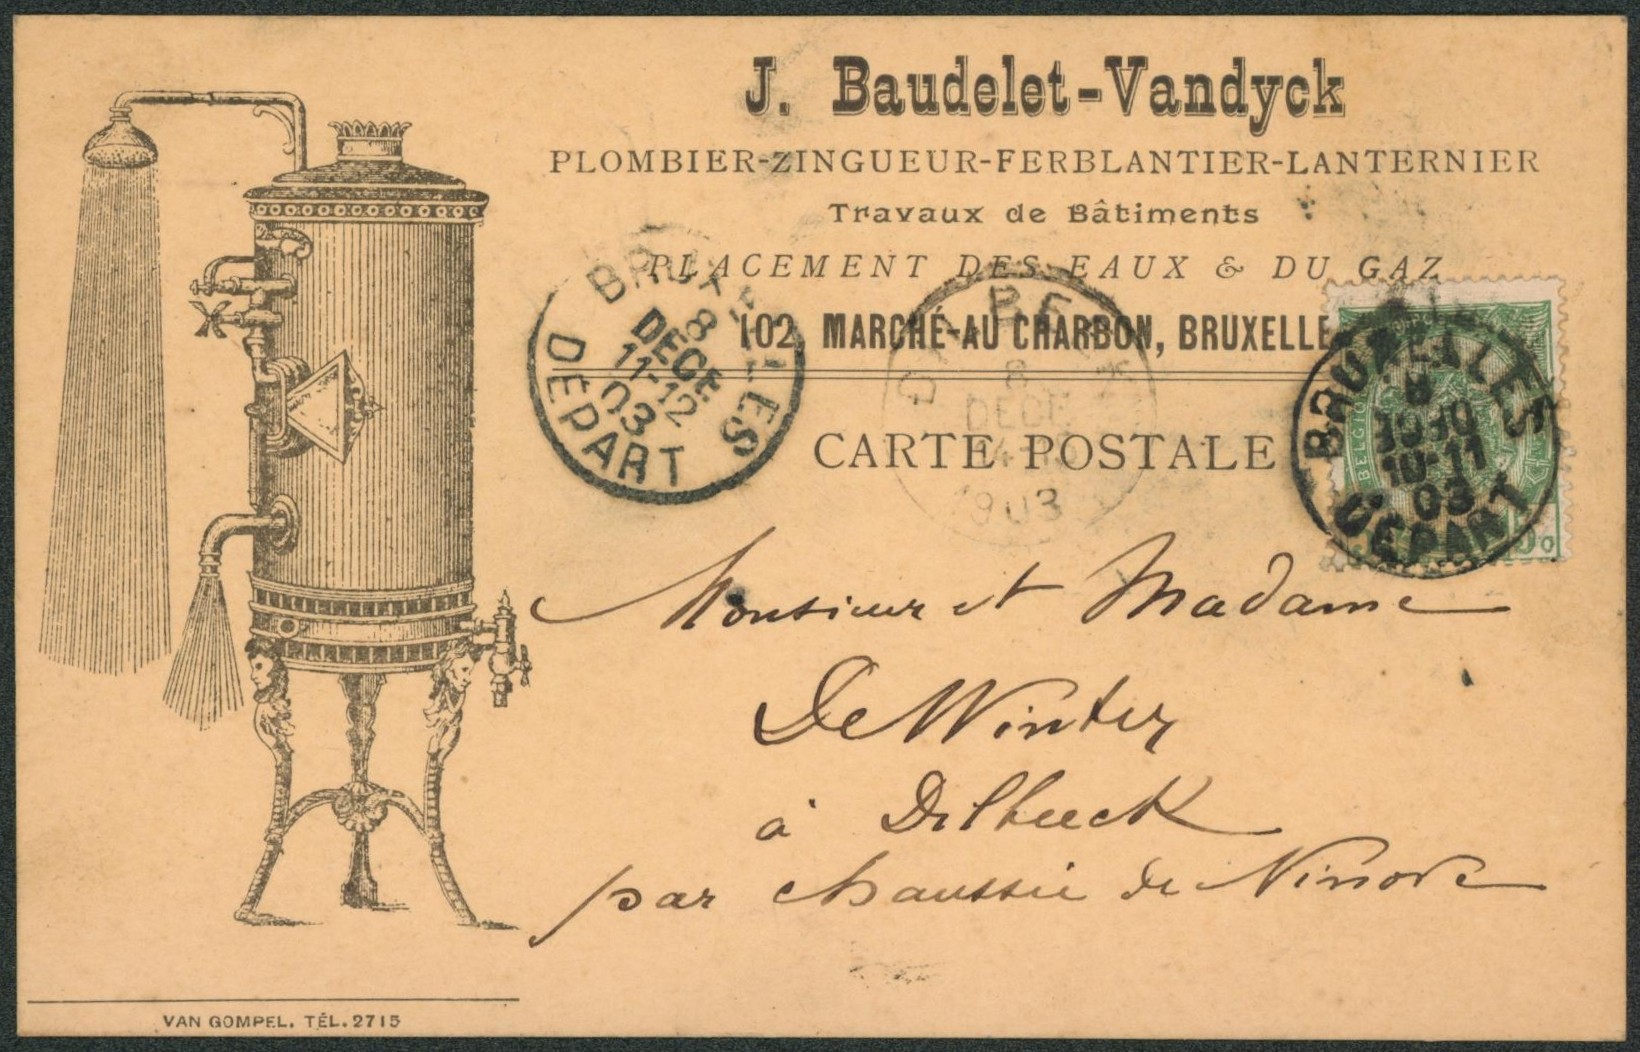 J. Baudelet-Vandyck
PLOMBIER-ZINGUEUR-FERBLANTIER-LANTERNIER
Travaux de Bâtiments
PLACEMENT DES EAUX & DU GAZ
102, MARCHÉ-AU CHARBON, BRUXELLE
CARTE POSTALE
BRUXELLES
8
DECE
11-12
03
DÉPART
8
DECE
1903
BRUXELLES
8
DECE
10-11
03
DÉPART
BELGIQ
Monsieur et Madame
De Winter
à Dilbeeck
par chaussée de Ninove
VAN GOMPEL. TÉL. 2715